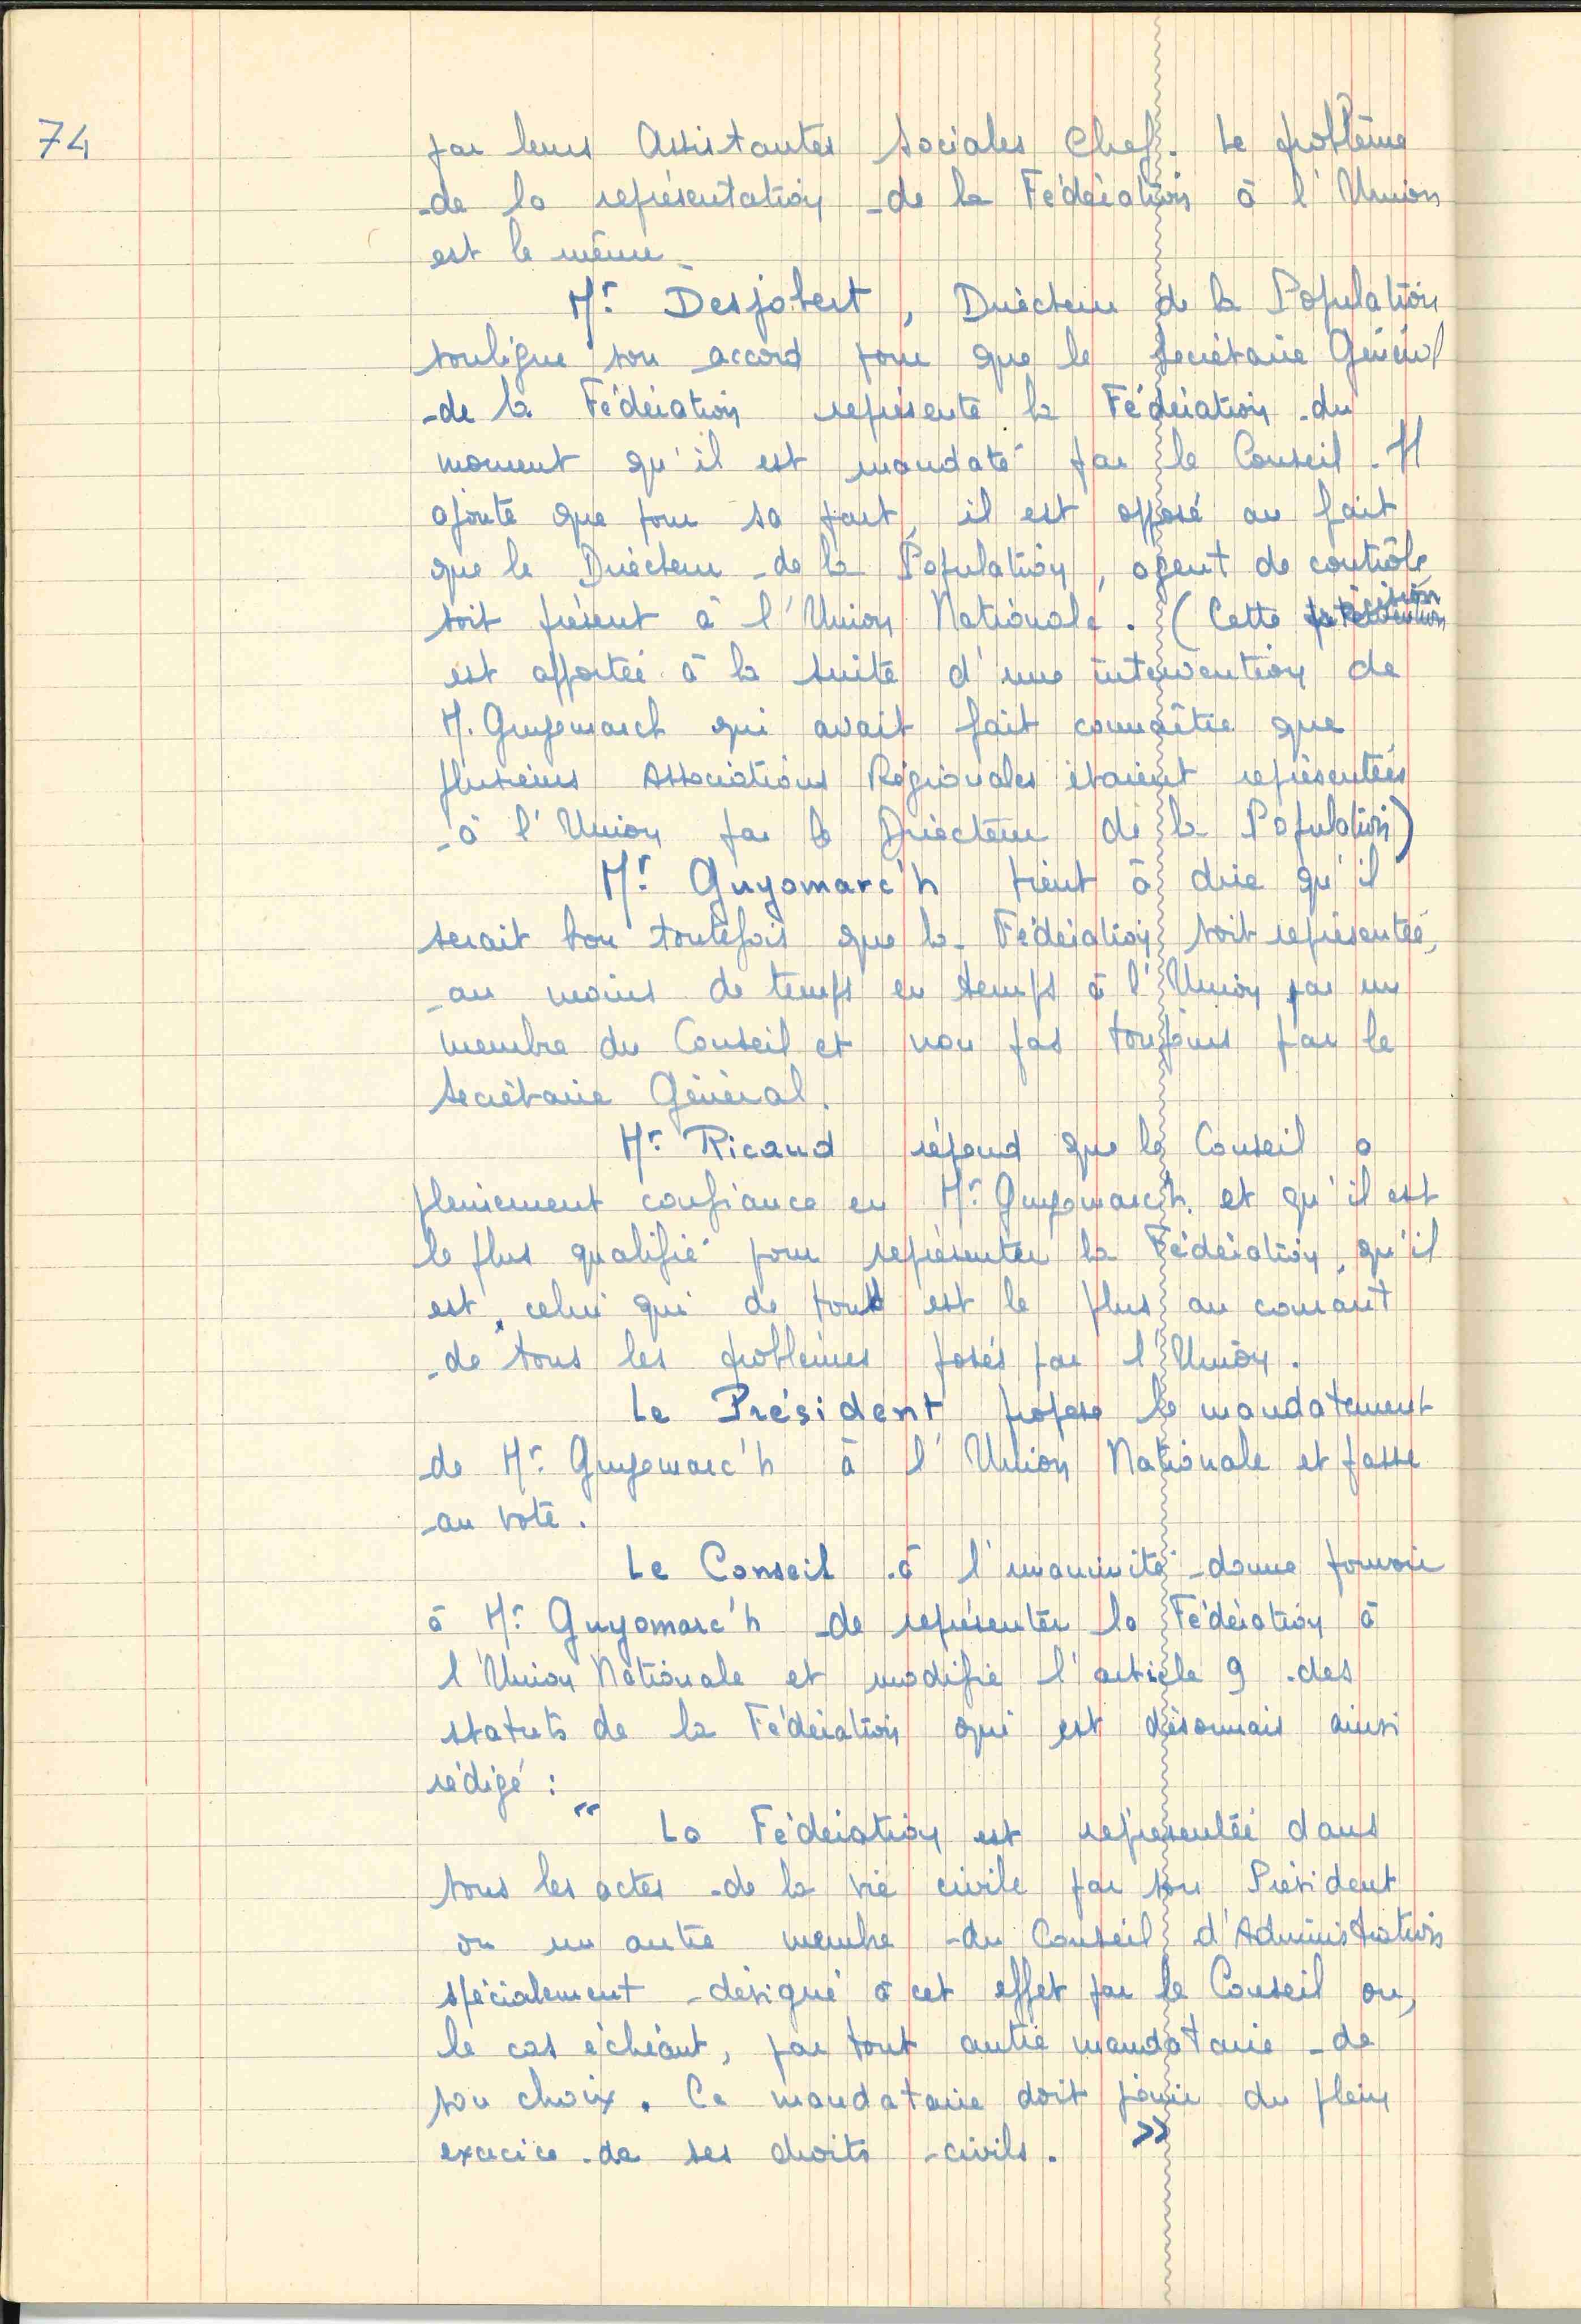 74
par leurs Assistantes Sociales Chef. Le problème
de la représentation de la Fédération à l'Union
est le même.
Mr. Desjobert, Directeur de la Population
souligne son accord pour que le Secrétaire Général
de la Fédération représente la Fédération du
moment qu'il est mandaté par le Conseil. Il
ajoute que pour sa part, il est opposé au fait
que le Directeur de la Population, agent de contrôle,
soit présent à l'Union Nationale. (Cette précision
est apportée à la suite d'une intervention de
M. Guyomarch qui avait fait connaître que
plusieurs Associations Régionales étaient représentées
à l'Union par le Directeur de la Population)
Mr. Guyomarc'h tient à dire qu'il
serait bon toutefois que la Fédération soit représentée,
au moins de temps en temps à l'Union par un
membre du Conseil et non pas toujours par le
Secrétaire Général.
Mr. Ricaud répond que le Conseil a
pleinement confiance en Mr. Guyomarc'h et qu'il est
le plus qualifié pour représenter la Fédération, qu'il
est celui qui de tous est le plus au courant
de tous les problèmes posés par l'Union.
Le Président propose le mandatement
de Mr. Guyomarc'h à l'Union Nationale et passe
au vote.
Le Conseil à l'unanimité donne pouvoir
à Mr. Guyomarc'h de représenter la Fédération à
l'Union Nationale et modifie l'article 9 des
statuts de la Fédération qui est désormais ainsi
rédigé :
" La Fédération est représentée dans
tous les actes de la vie civile par son Président
ou un autre membre du Conseil d'Administration
spécialement désigné à cet effet par le Conseil ou,
le cas échéant, par tout autre mandataire de
son choix. Ce mandataire doit jouir du plein
exercice de ses droits civils. "